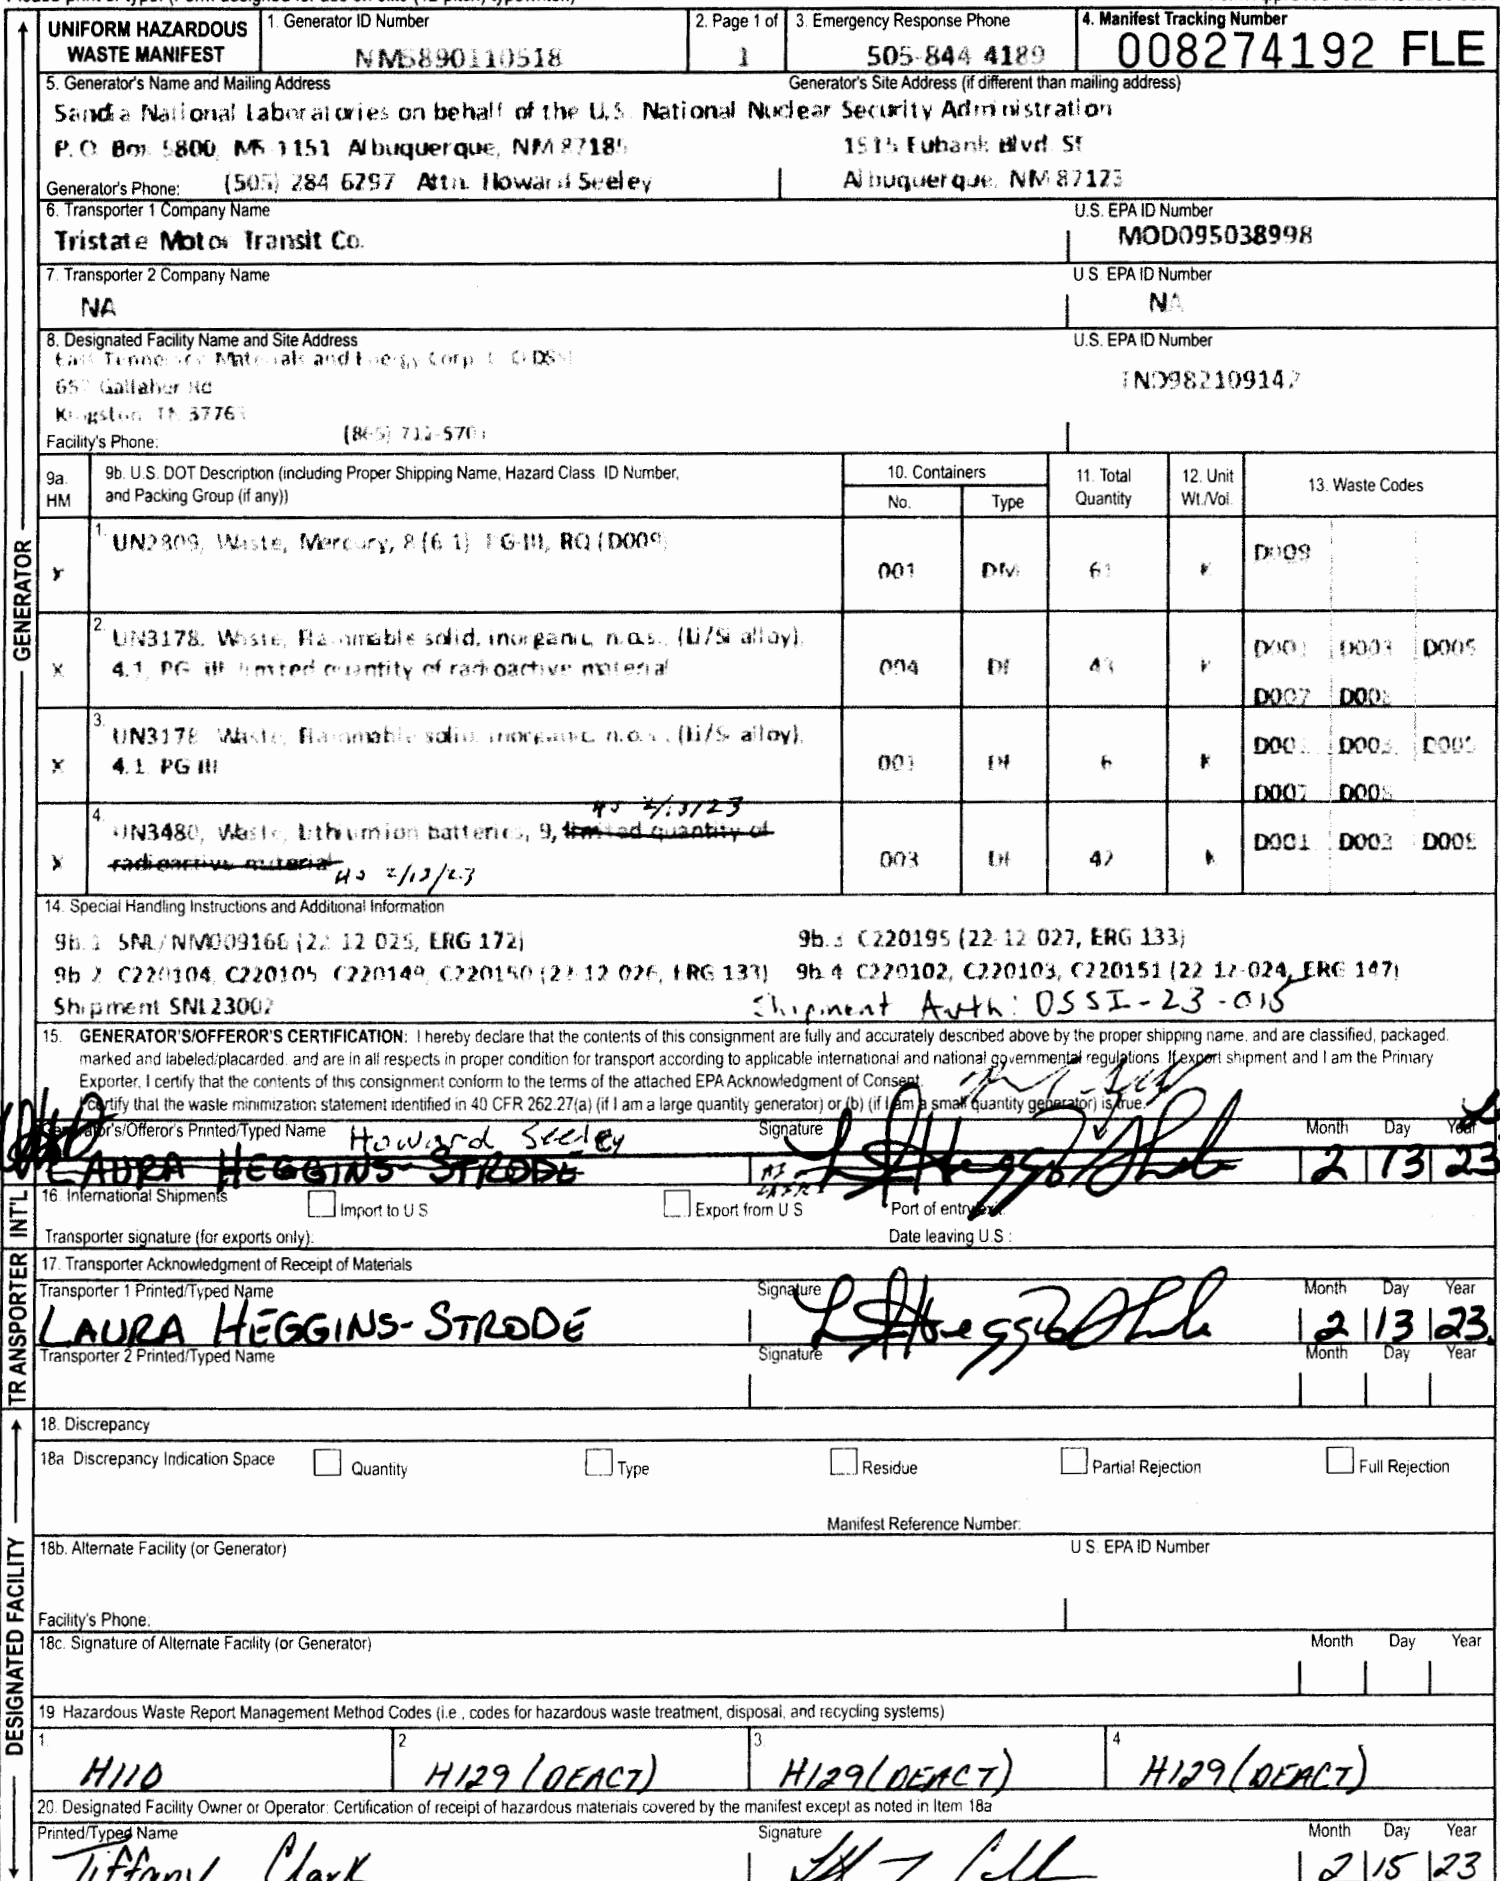 UNIFORM HAZARDOUS WASTE MANIFEST
1. Generator ID Number
NM5890110518
2. Page 1 of
1
3. Emergency Response Phone
505-844 4189
4. Manifest Tracking Number
008274192 FLE
5. Generator's Name and Mailing Address
Generator's Site Address (if different than mailing address)
Sandia National Laboratories on behalf of the U.S. National Nuclear Security Administration
P. O. Box 5800, MS 1151 Albuquerque, NM 87185
1515 Eubank Blvd. SE
Generator's Phone: (505) 284 6297 Attn. Howard Seeley
Albuquerque, NM 87123
6. Transporter 1 Company Name
U.S. EPA ID Number
Tristate Motor Transit Co.
MOD095038998
7. Transporter 2 Company Name
U.S. EPA ID Number
NA
NA
8. Designated Facility Name and Site Address
U.S. EPA ID Number
East Tennessee Materials and Energy Corp.
Gallaher Rd
TND982109142
Kingston, TN 37763
Facility's Phone:
9a. HM
9b. U.S. DOT Description (including Proper Shipping Name, Hazard Class. ID Number,
and Packing Group (if any))
10. Containers
No.
Type
11. Total Quantity
12. Unit Wt./Vol.
13. Waste Codes
1. UN2809, Waste, Mercury, 8 (6.1) PG III, RQ (D009)
001 DM 61 K
D009
2. UN3178, Waste, Flammable solid, inorganic, n.o.s., (Li/Si alloy),
X 4.1, PG III limited quantity of radioactive material
004 DF 43 K
D001 D003 D005
D007 D008
3. UN3178 Waste, Flammable solid inorganic, n.o.s., (Li/Si alloy),
X 4.1 PG III
001 DF 6 K
D001 D003 D005
D007 D008
HS 2/13/23
4. UN3480, Waste, Lithium ion batteries, 9, limited quantity of
X radioactive material HS 2/13/23
003 DF 42 K
D001 D003 D008
14. Special Handling Instructions and Additional Information
9b.1 SNL/NM009166 (22 12 025, ERG 172)
9b.3 C220195 (22-12 027, ERG 133)
9b 2 C220104, C220105 C220149, C220150 (22 12 026, ERG 133)
9b 4 C220102, C220103, C220151 (22 12-024, ERG 147)
Shipment SNL23002
Shipment Auth: DSSI-23-015
15. GENERATOR'S/OFFEROR'S CERTIFICATION: I hereby declare that the contents of this consignment are fully and accurately described above by the proper shipping name, and are classified, packaged,
marked and labeled/placarded, and are in all respects in proper condition for transport according to applicable international and national governmental regulations. If export shipment and I am the Primary
Exporter, I certify that the contents of this consignment conform to the terms of the attached EPA Acknowledgment of Consent.
I certify that the waste minimization statement identified in 40 CFR 262.27(a) (if I am a large quantity generator) or (b) (if I am a small quantity generator) is true.
Generator's/Offeror's Printed/Typed Name
Howard Seeley
Signature
Month Day Year
LAURA HEGGINS-STRODE
2 13 23
16. International Shipments
Import to U S
Export from U S
Port of entry/exit:
Transporter signature (for exports only):
Date leaving U.S :
17. Transporter Acknowledgment of Receipt of Materials
Transporter 1 Printed/Typed Name
Signature
Month Day Year
LAURA HEGGINS-STRODE
2 13 23
Transporter 2 Printed/Typed Name
Signature
Month Day Year
18. Discrepancy
18a Discrepancy Indication Space
Quantity
Type
Residue
Partial Rejection
Full Rejection
Manifest Reference Number:
18b. Alternate Facility (or Generator)
U S. EPA ID Number
Facility's Phone:
18c. Signature of Alternate Facility (or Generator)
Month Day Year
19 Hazardous Waste Report Management Method Codes (i.e., codes for hazardous waste treatment, disposal, and recycling systems)
1. H110
2 H129 (DEACT)
3. H129 (DEACT)
4 H129 (DEACT)
20. Designated Facility Owner or Operator: Certification of receipt of hazardous materials covered by the manifest except as noted in Item 18a
Printed/Typed Name
Signature
Month Day Year
Tiffany Clark
2 15 23
GENERATOR
INT'L
TRANSPORTER
DESIGNATED FACILITY